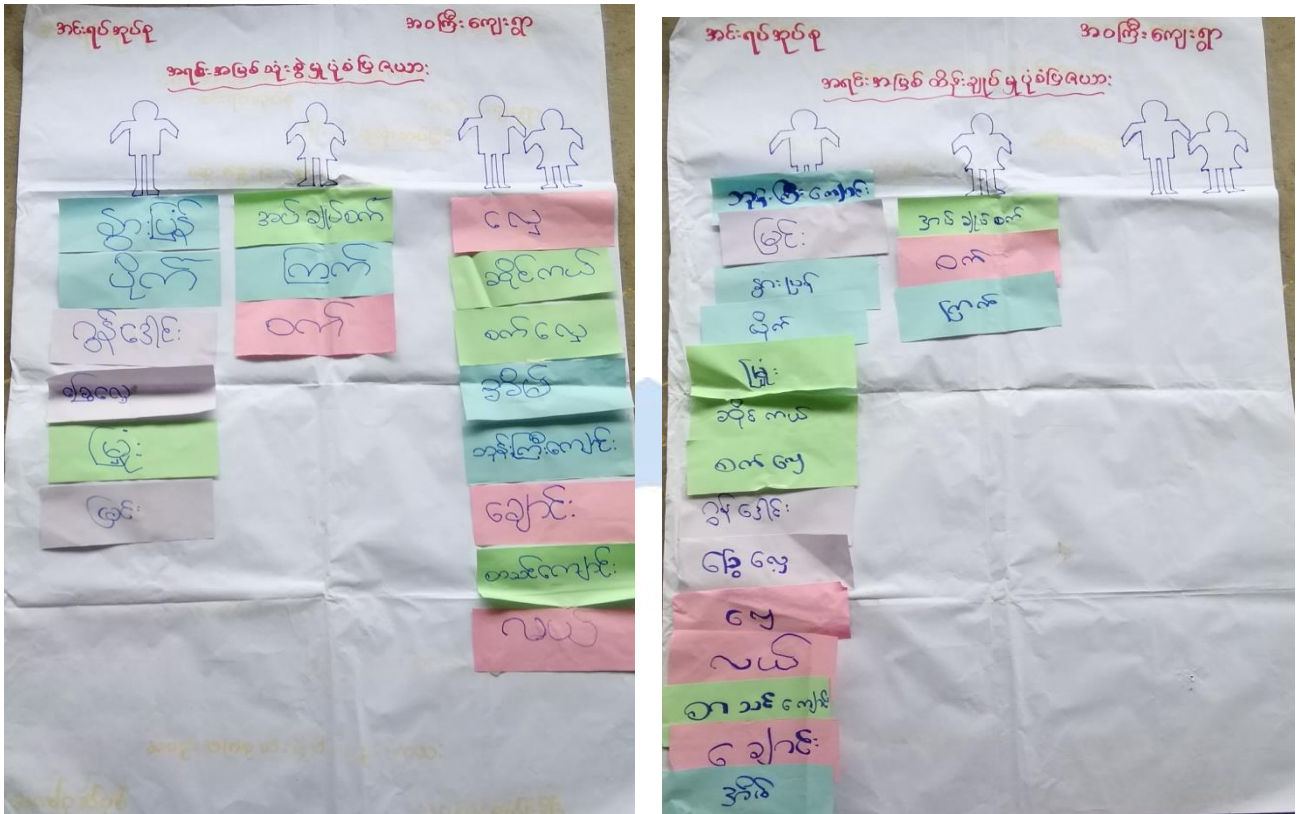 အင်းရပ်အုပ်စု
အဝကြီးကျေးရွာ
အရင်းအမြစ်သုံးစွဲမှုပုံစံပြဇယား
နွားပြန်
ပိုက်
ဂွန်ဒေါင်း
ခြွေလှေ
မြှုံး
မြင်း
အပ်ချုပ်စက်
ကြက်
ဝက်
လှေ
ဆိုင်ကယ်
စက်လှေ
အိမ်
ဘုန်းကြီးကျောင်း
ချောင်း
စာသင်ကျောင်း
လယ်
အင်းရပ်အုပ်စု
အဝကြီးကျေးရွာ
အရင်းအမြစ်ထိန်းချုပ်မှုပုံစံပြဇယား
ဘုန်းကြီးကျောင်း
မြင်း
နွားပြန်
ပိုက်
မြှုံး
ဆိုင်ကယ်
စက်လှေ
ဂွန်ဒေါင်း
ခြွေလှေ
လှေ
လယ်
စာသင်ကျောင်း
ချောင်း
အိမ်
အပ်ချုပ်စက်
ဝက်
ကြက်